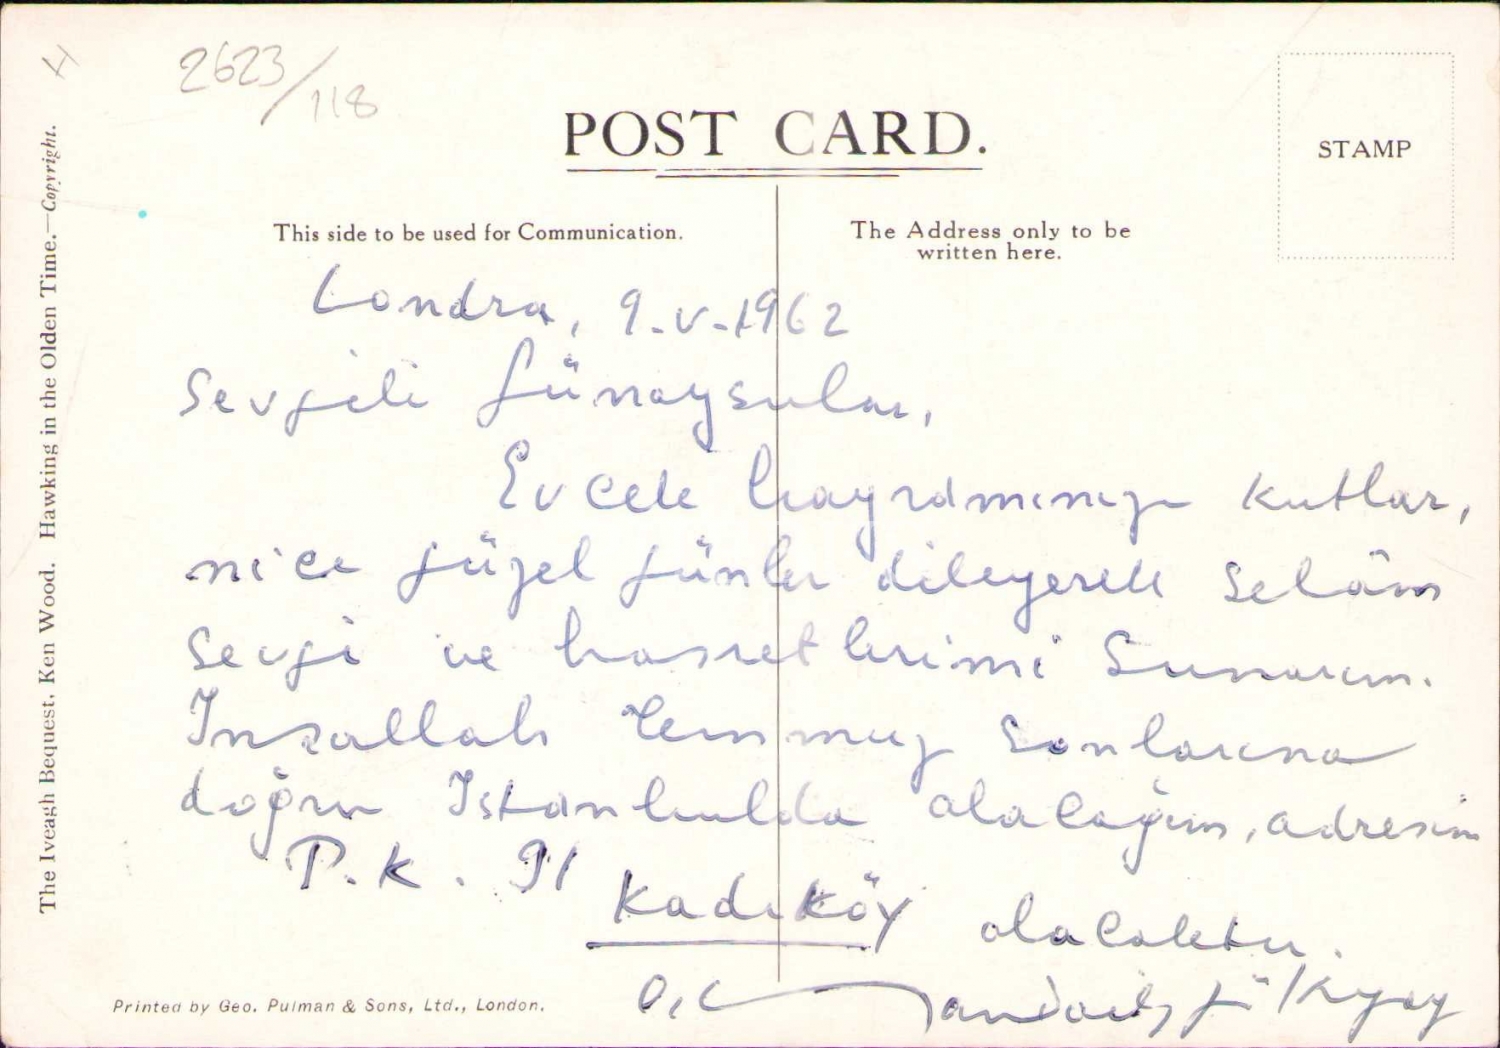 H
2623/118
POST CARD.
STAMP
This side to be used for Communication.
The Address only to be
written here.
Londra, 9-V-1962
Sevgili Günaysular,
Evcek bayramınızı kutlar,
nice güzel günler dileyerek selâm
sevgi ve hasretlerimi sunarım.
İnşallah Temmuz sonlarına
doğru İstanbulda olacağım, adresim
P.K. 91
Kadıköy olacaktır.
The Iveagh Bequest, Ken Wood. Hawking in the Olden Time.—Copyright.
Printed by Geo. Pulman & Sons, Ltd., London.